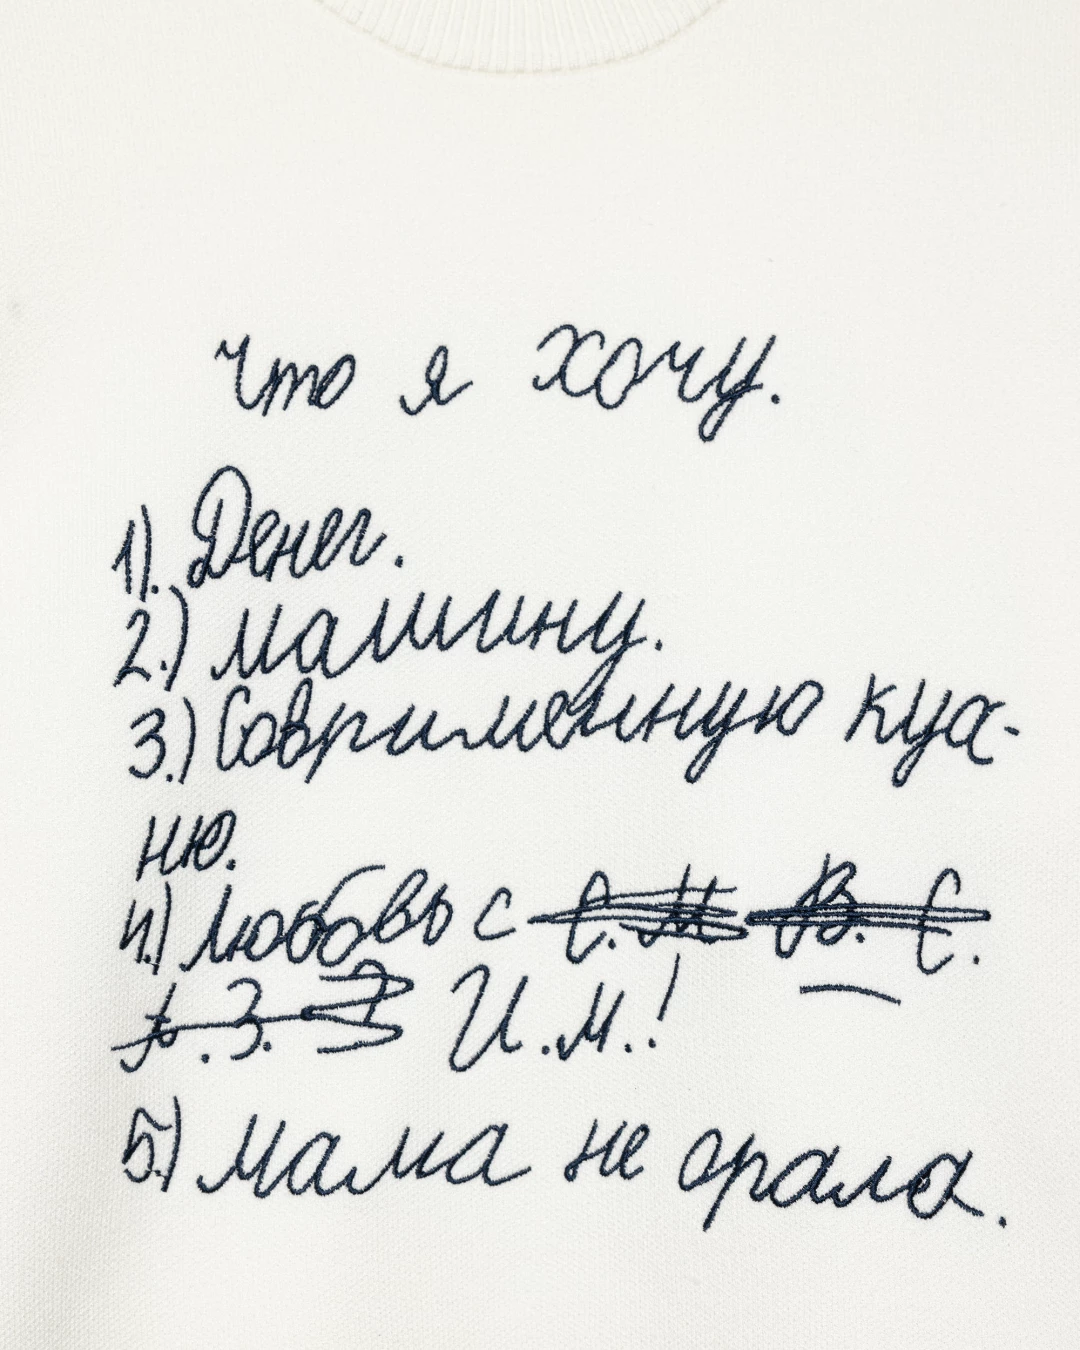 Что я хочу.
1). Денег.
2.) машину.
3.) Совримейнную куа-
ню.
4.) Любовь с С. М В. С.
А. З. З И.М.!
5.) Мама не орала.